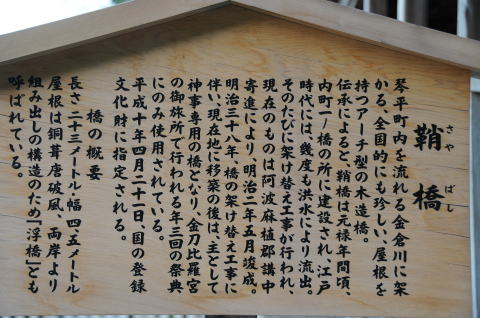 鞘橋
さや ばし
琴平町内を流れる金倉川に架
かる、全国的にも珍しい、屋根を
持つアーチ型の木造橋。
伝承によると、鞘橋は元禄年間頃、
内町一ノ橋の所に建設され、江戸
時代には、幾度も洪水により流出。
そのたびに架け替え工事が行われ、
現在のものは阿波麻植郡講中
寄進により、明治二年五月竣成。
明治三十八年、橋の架け替え工事に
伴い、現在地に移築の後は、主として
神事専用の橋となり、金刀比羅宮
の御旅所で行われる年三回の祭典
にのみ使用されている。
平成十年四月二十一日、国の登録
文化財に指定される。
橋の概要
長さ二十三メートル・幅四・五メートル
屋根は銅葺唐破風、両岸より
組み出しの構造のため「浮橋」とも
呼ばれている。